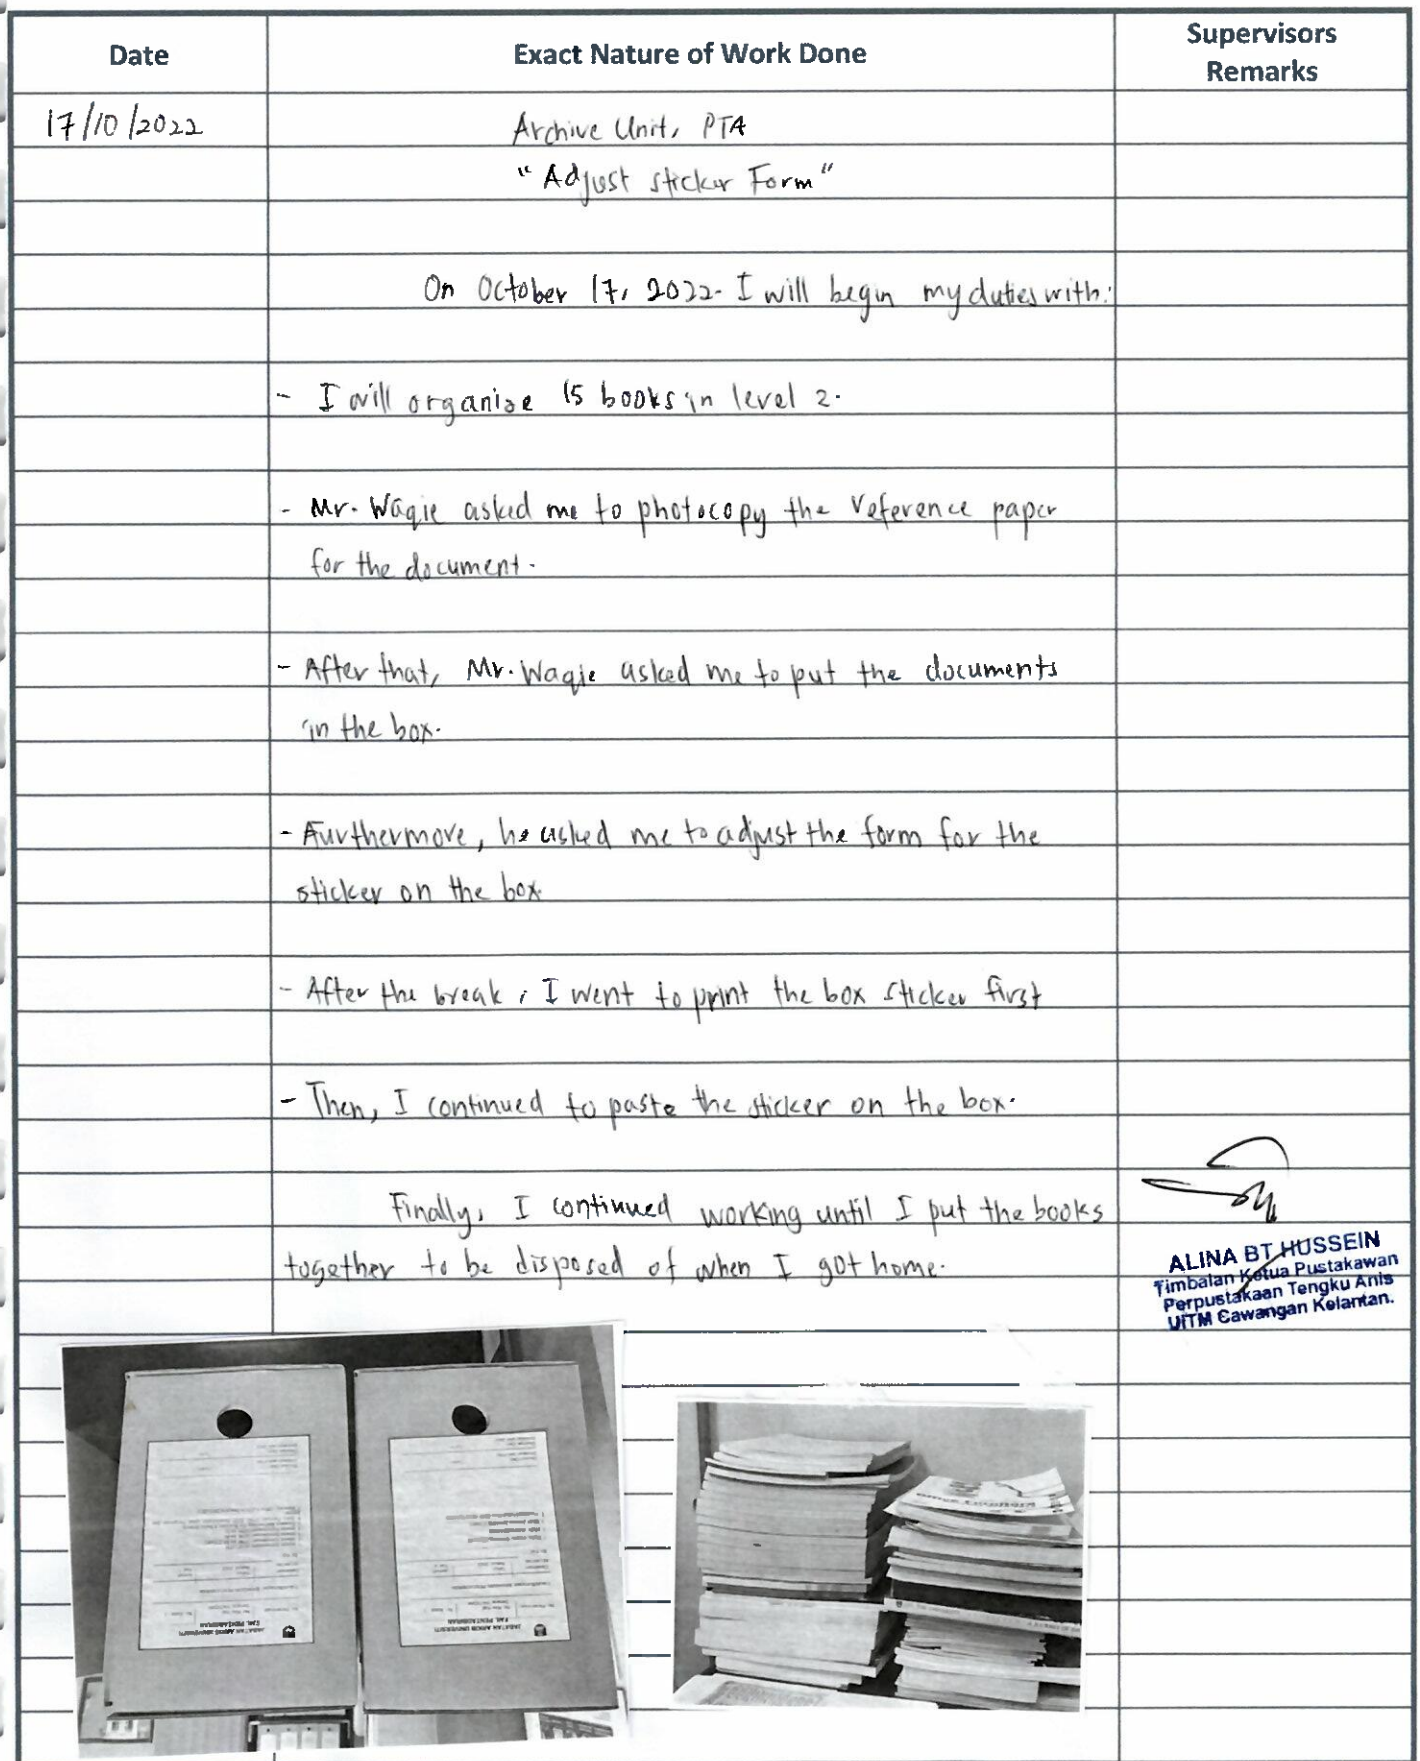 Date
Exact Nature of Work Done
Supervisors
Remarks
17/10/2022
Archive Unit, PTA
"Adjust sticker Form"
On October 17, 2022. I will begin my duties with:
- I will organize 15 books in level 2.
- Mr. Waqie asked me to photocopy the reference paper
for the document.
- After that, Mr. Waqie asked me to put the documents
in the box.
- Furthermore, he asked me to adjust the form for the
sticker on the box.
- After the break, I went to print the box sticker first
- Then, I continued to paste the sticker on the box.
Finally, I continued working until I put the books
together to be disposed of when I got home.
ALINA BT HUSSEIN
Timbalan Ketua Pustakawan
Perpustakaan Tengku Anis
UiTM Cawangan Kelantan.
JABATAN ARKIB UNIVERSITI
FAIL PENTADBIRAN
JABATAN ARKIB UNIVERSITI
FAIL PENTADBIRAN